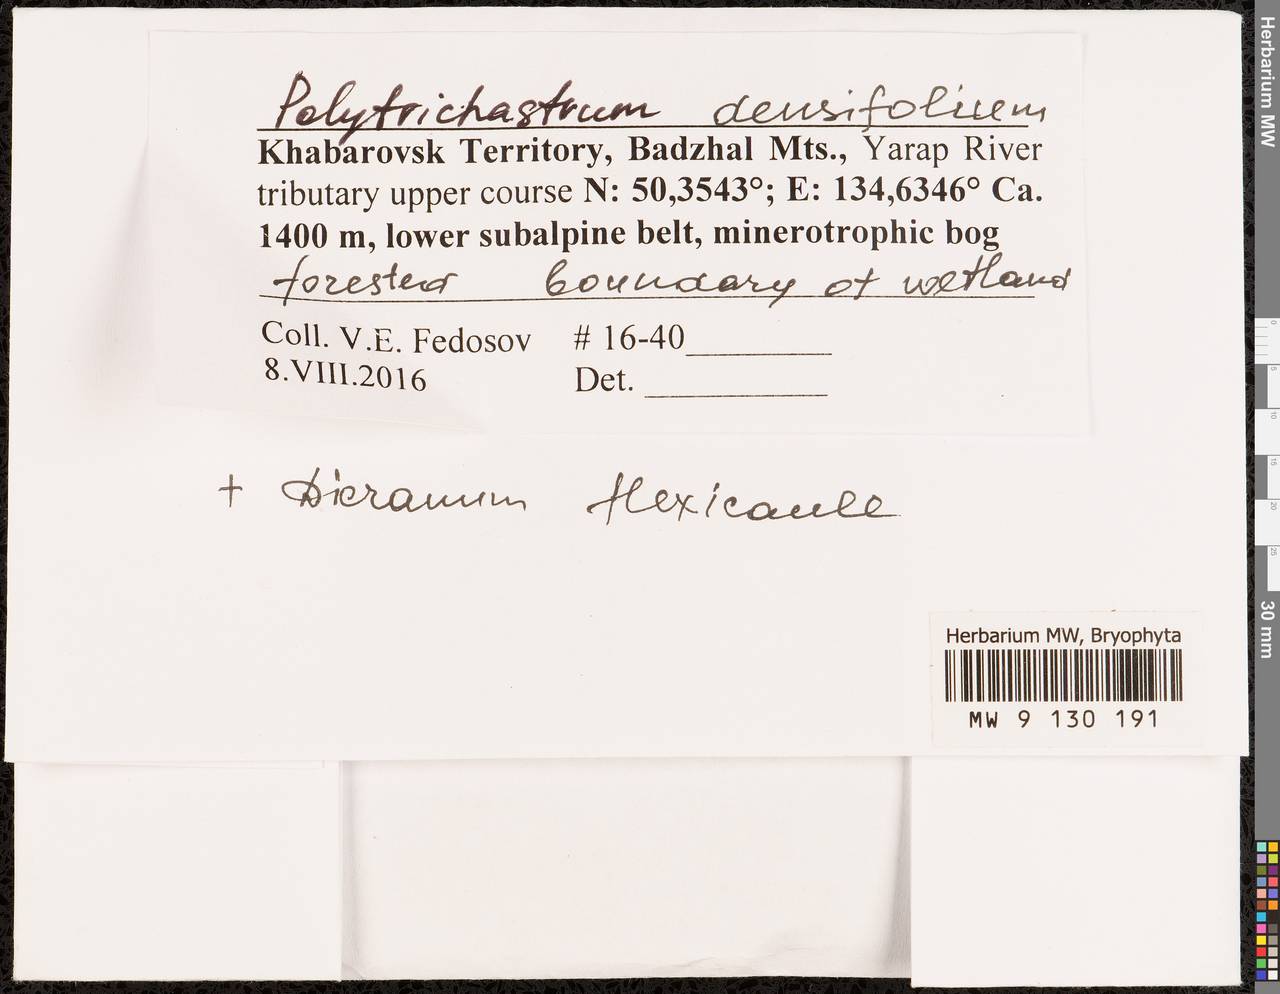 Polytrichastrum densifolium
Khabarovsk Territory, Badzhal Mts., Yarap River
tributary upper course N: 50,3543°; E: 134,6346° Ca.
1400 m, lower subalpine belt, minerotrophic bog
forested boundary of wetland
Coll. V.E. Fedosov # 16-40
8.VIII.2016 Det.
+ Dicranum flexicaule
Herbarium MW, Bryophyta
MW 9 130 191
Herbarium MW
0
5
10
15
20
25
30 mm